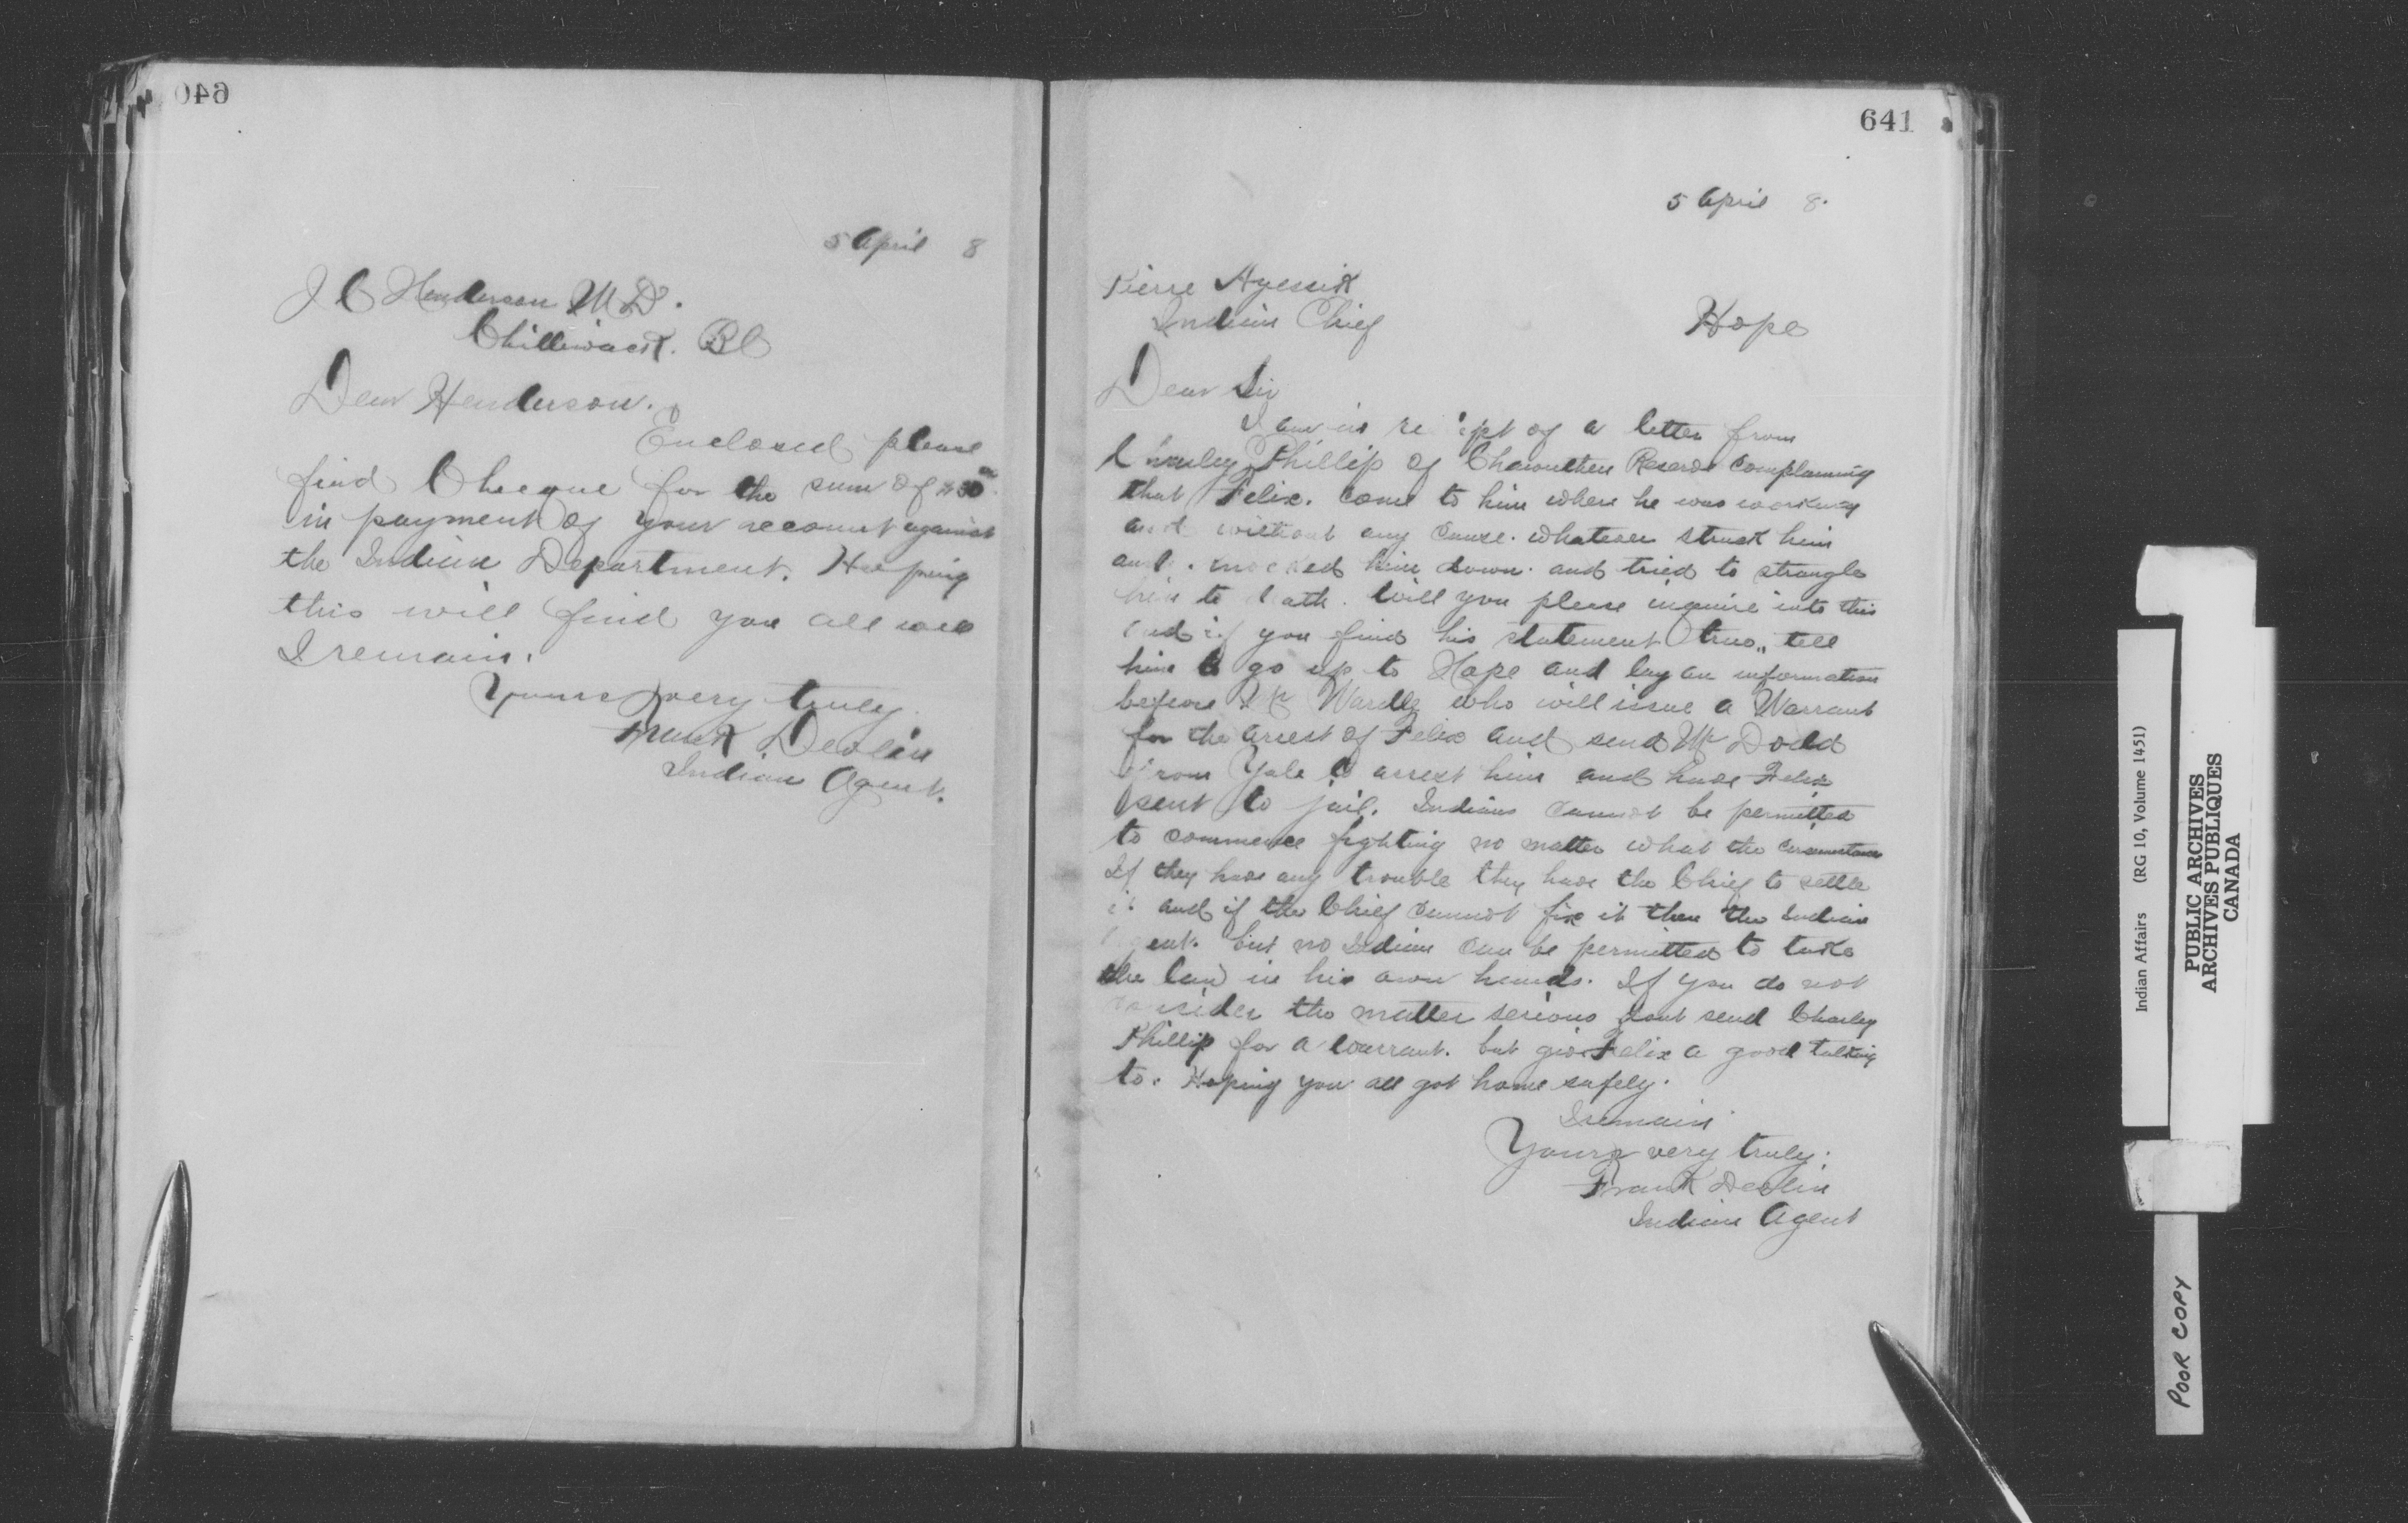 640
5 April 8
J C Henderson M.D.
Chilliwack. BC
Dear Henderson.
Enclosed please
find Cheque for the sum of
in payment of your account against
the Indian Department. Hopeing
this will find you all well
I remain.
Yours very truly.
Frank Devlin
Indian Agent.
641
5 April 8.
Pierre
Indian Chief
Hope
Dear Sir
I am in receipt of a letter from
Charley Phillip of Reserve complaining
that Felix. came to him where he was working
and without any cause. whatever struck him
and. knocked him down. and tried to strangle
him to death. Will you please inquire into this
and if you find his statement true,, tell
him to go up to Hope and lay an information
before Mr Wardle who will issue a Warrant
for the arrest of Felix and send Mr Dodd
from Yale to arrest him and have Felix
sent to jail. Indians cannot be permitted
to commence fighting no matter what the circumstances
If they have any trouble they have the Chief to settle
it. and if the Chief cannot fix it then the Indian
Agent. but no Indian can be permitted to take
the law in his own hands. If you do not
consider the matter serious dont send Charley
Phillip for a warrant. but give Felix a good talking
to. Hoping you all got home safely.
I remain
Yours very truly.
Frank Devlin
Indian Agent
Indian Affairs (RG 10, Volume 1451)
PUBLIC ARCHIVES
ARCHIVES PUBLIQUES
CANADA
POOR COPY